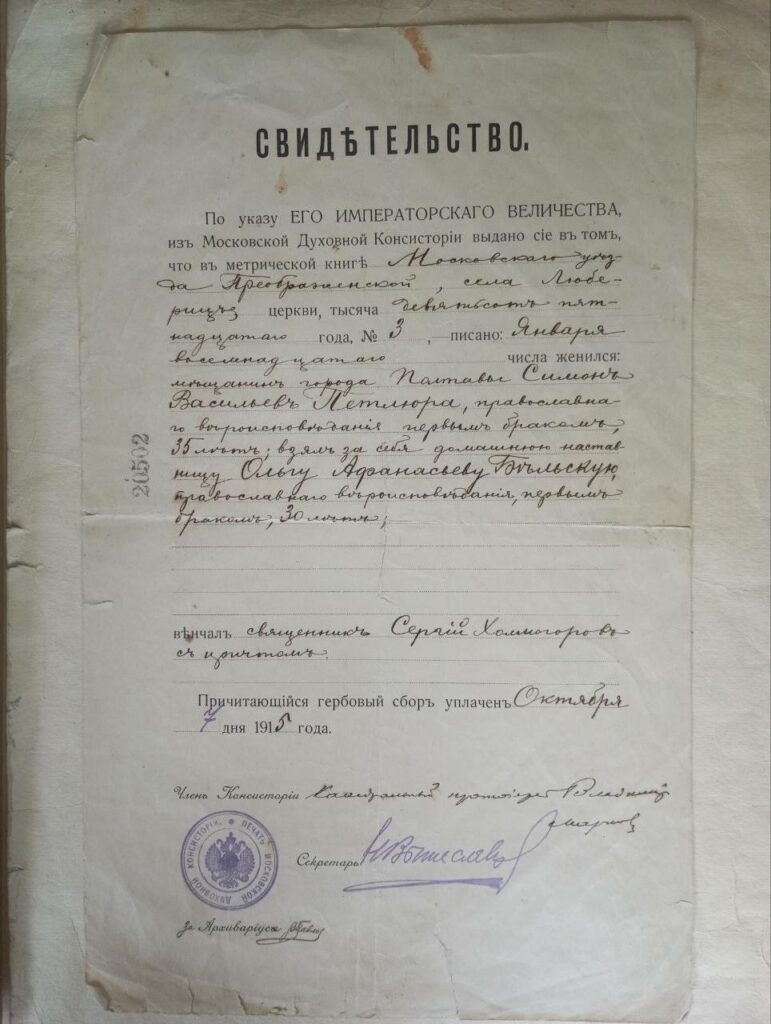 СВИДѢТЕЛЬСТВО.
По указу ЕГО ИМПЕРАТОРСКАГО ВЕЛИЧЕСТВА,
изъ Московской Духовной Консисторіи выдано сіе въ томъ,
что въ метрической книгѣ Московскаго уѣз-
да Преображенской, села Любе-
рицъ церкви, тысяча девятьсотъ пят-
надцатаго года, № 3, писано: Января
восемнадцатаго числа женился:
мѣщанинъ города Полтавы Симонъ
Васильевъ Петлюра, православна-
го вѣроисповѣданія первымъ бракомъ,
35 лѣтъ; взялъ за себя домашнюю настав-
ницу Ольгу Афанасьеву Бѣльскую,
православнаго вѣроисповѣданія, первымъ
бракомъ, 30 лѣтъ;
20502
вѣнчалъ священникъ Сергій Холмогоровъ
съ причтомъ.
Причитающійся гербовый сборъ уплаченъ Октября
7 дня 1915 года.
Членъ Консисторіи Каѳедральный протоіерей Владимір
Марков
ПЕЧАТЬ МОСКОВСКОЙ ДУХОВНОЙ КОНСИСТОРІИ.
Секретарь
За Архиваріуса